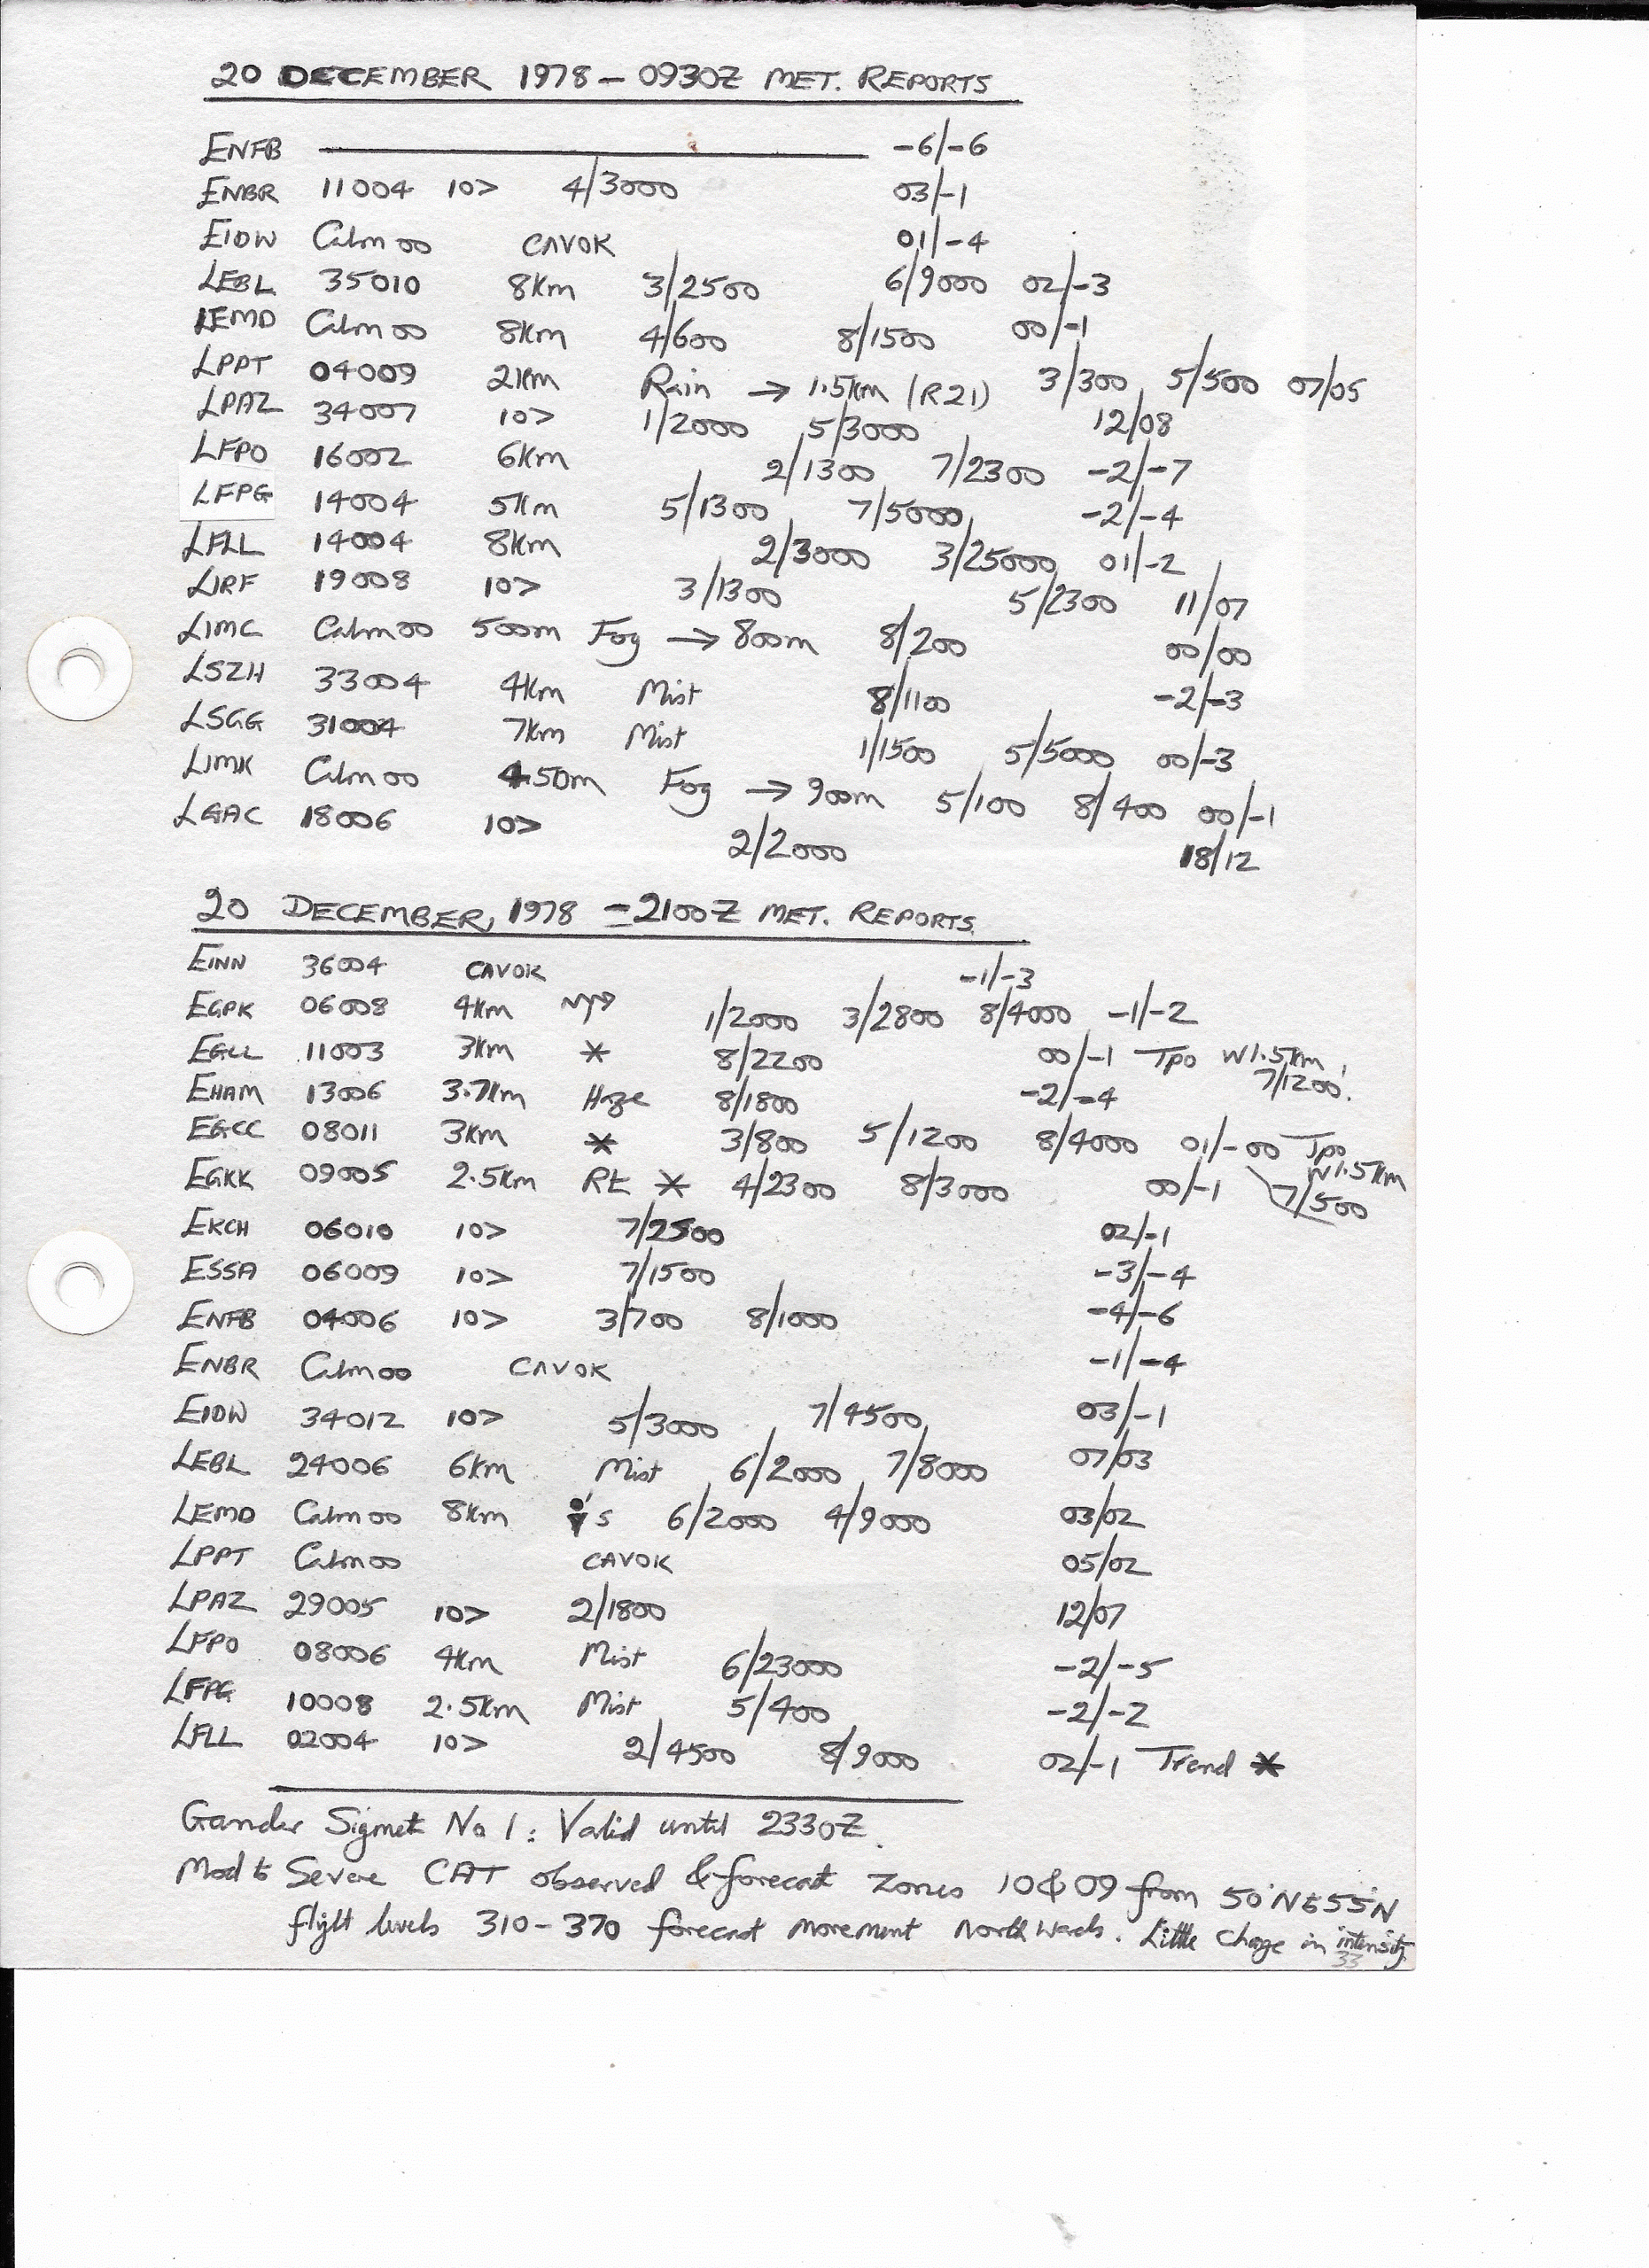 20 DECEMBER 1978 - 0930Z MET. REPORTS
ENFB -6/-6
ENBR 11004 10> 4/3000 03/-1
EIDW Calm 00 CAVOK 01/-4
LEBL 35010 8Km 3/2500 6/9000 02/-3
LEMD Calm 00 8Km 4/600 8/1500 00/-1
LPPT 04009 2Km Rain → 1.5Km (R21) 3/300 5/500 07/05
LPAZ 34007 10> 1/2000 5/3000 12/08
LFPO 16002 6Km 2/1300 7/2300 -2/-7
LFPG 14004 5Km 5/1300 7/5000 -2/-4
LFLL 14004 8Km 2/3000 3/25000 01/-2
LIRF 19008 10> 3/1300 5/2300 11/07
LIMC Calm 00 500m Fog → 800m 8/200 00/00
LSZH 33004 4Km Mist 8/1100 -2/-3
LSGG 31004 7Km Mist 1/1500 5/5000 00/-3
LIMK Calm 00 450m Fog → 900m 5/100 8/400 00/-1
LGAC 18006 10> 2/2000 18/12
20 DECEMBER, 1978 - 2100Z MET. REPORTS.
EINN 36004 CAVOK -1/-3
EGPK 06008 4Km 1/2000 3/2800 8/4000 -1/-2
EGLL 11003 3Km * 8/2200 00/-1 Tpo W1.5Km, 7/1200.
EHAM 13006 3.7Km Haze 8/1800 -2/-4
EGCC 08011 3Km * 3/800 5/1200 8/4000 01/-00 Tpo W1.5Km 7/500
EGKK 09005 2.5Km RE * 4/2300 8/3000 00/-1
EKCH 06010 10> 7/2500 02/-1
ESSA 06009 10> 7/1500 -3/-4
ENFB 04006 10> 3/700 8/1000 -4/-6
ENBR Calm 00 CAVOK -1/-4
EIDW 34012 10> 5/3000 7/4500 03/-1
LEBL 24006 6Km Mist 6/2000 7/8000 07/03
LEMD Calm 00 8Km 6/2000 4/9000 03/02
LPPT Calm 00 CAVOK 05/02
LPAZ 29005 10> 2/1800 12/07
LFPO 08006 4Km Mist 6/23000 -2/-5
LFPG 10008 2.5Km Mist 5/400 -2/-2
LFLL 02004 10> 2/4500 8/9000 02/-1 Trend *
Gander Sigmet No 1: Valid until 2330Z.
Mod to Severe CAT observed & forecast Zones 10 & 09 from 50°N to 55°N
flight levels 310-370 forecast movement Northwards. Little change in intensity.
33